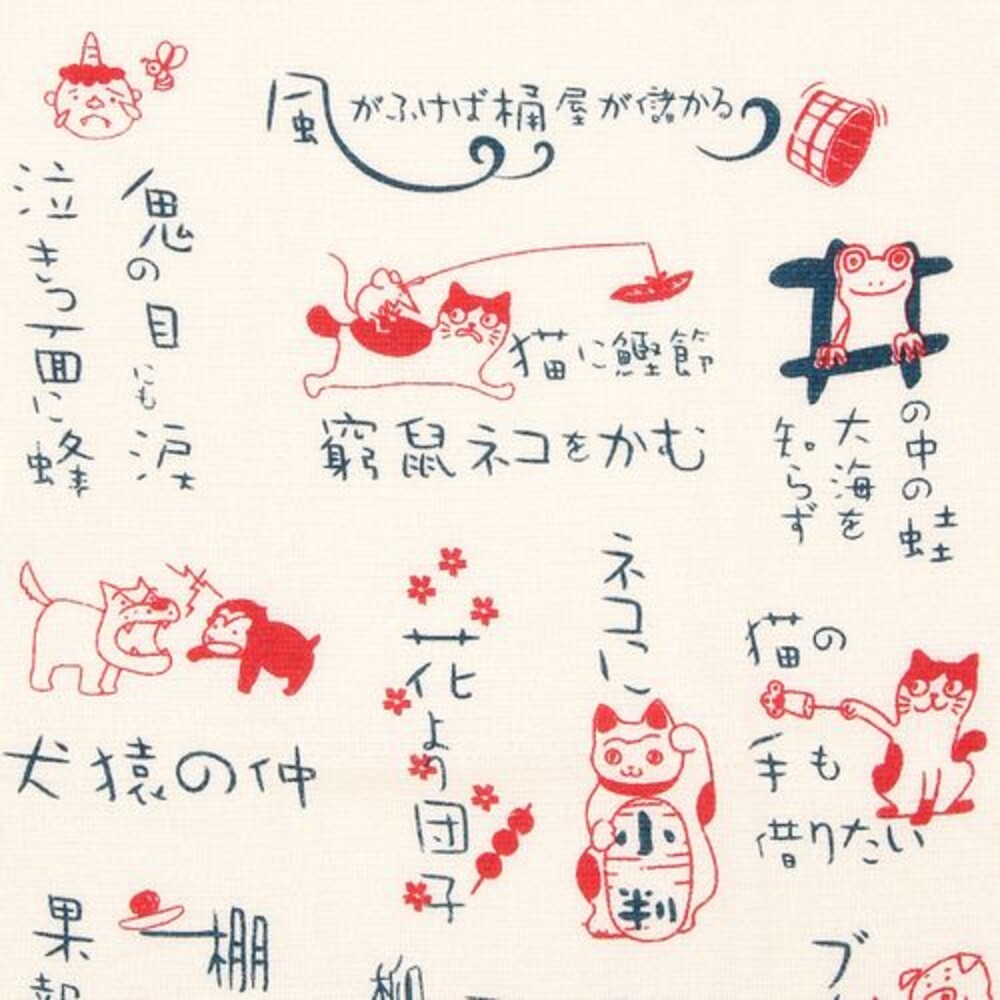 鬼の目にも涙
泣きっ面に蜂
風がふけば桶屋が儲かる
猫に鰹節
窮鼠ネコをかむ
の中の蛙
大海を
知らず
犬猿の仲
花より団子
ネコに
小判
猫の
手も
借りたい
果報
棚
柳
ブ